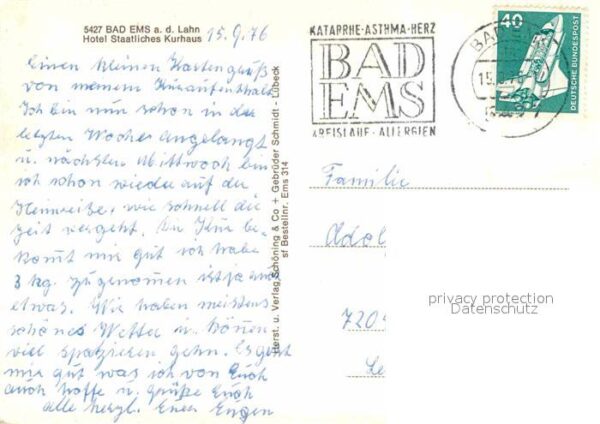 5427 BAD EMS a. d. Lahn
Hotel Staatliches Kurhaus
15.9.76
Einen kleinen Kartengruß
von meinem Kuraufenthalt.
Ich bin nun schon in der
letzten Woche angelangt
u. nächsten Mittwoch bin
ich schon wieder auf der
Heimreise, wie schnell die
Zeit vergeht. Die Kur be-
komt mir gut ich habe
3 kg. zugenomen ist ja auch
etwas. Wir haben meistens
schönes Wetter u. können
viel spazieren gehn. Es geht
mir gut was ich von Euch
auch hoffe u. grüße Euch
alle herzl. Euer Eugen
Herst. u. Verlag Schöning & Co + Gebrüder Schmidt - Lübeck
sf Bestellnr. Ems 314
KATARRHE-ASTHMA-HERZ
BAD
EMS
KREISLAUF-ALLERGIEN
BAD
15.9.76
40
DEUTSCHE BUNDESPOST
Familie
Adol
720
privacy protection
Datenschutz